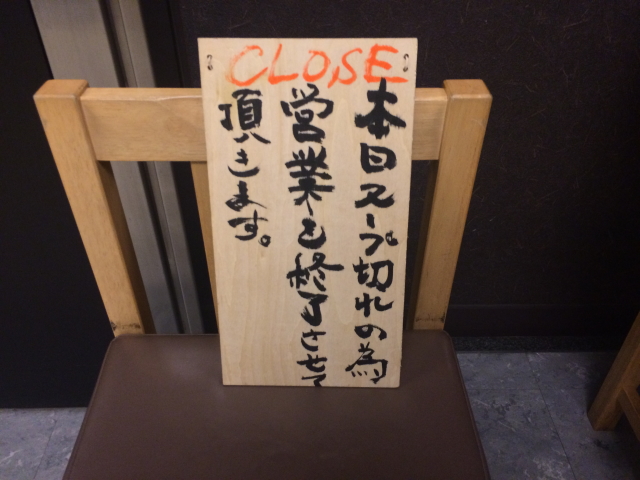 CLOSE
本日スープ切れの為
営業を終了させて
頂きます。